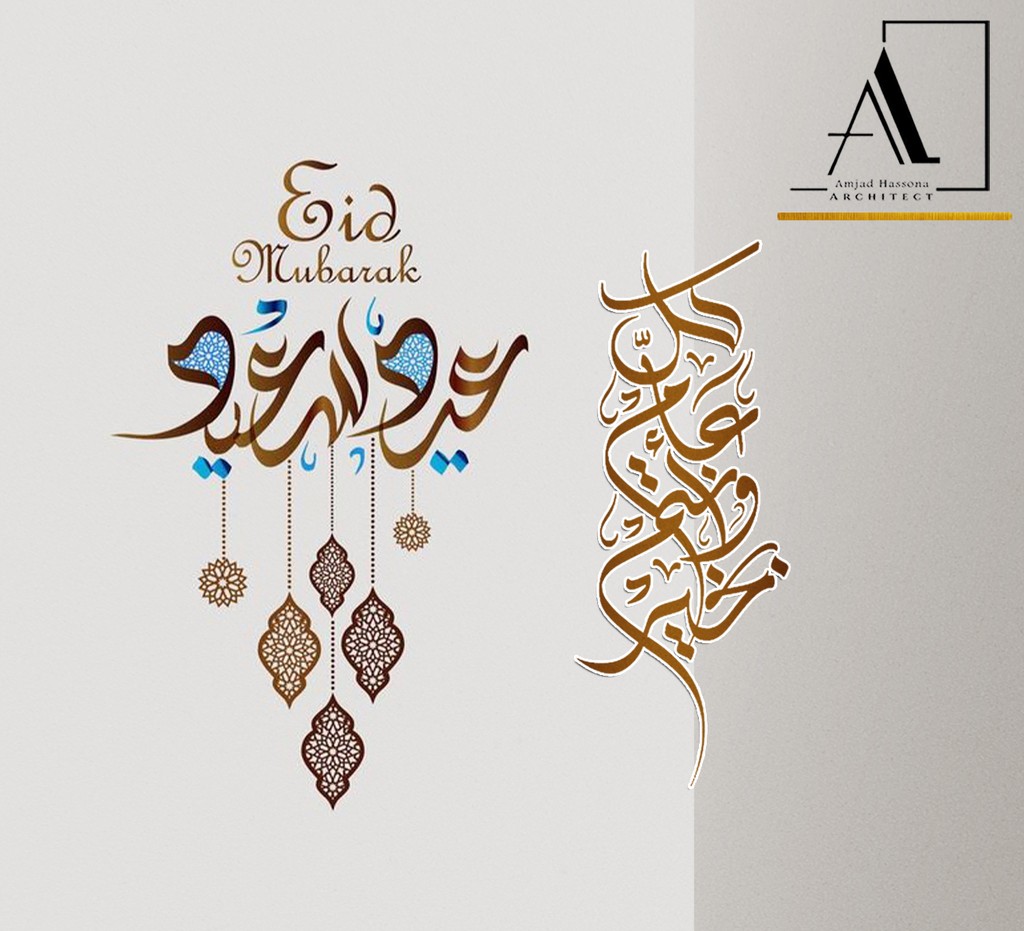 Eid
Mubarak
عيد سعيد
كل عام وأنتم بخير
Amjad Hassona
ARCHITECT